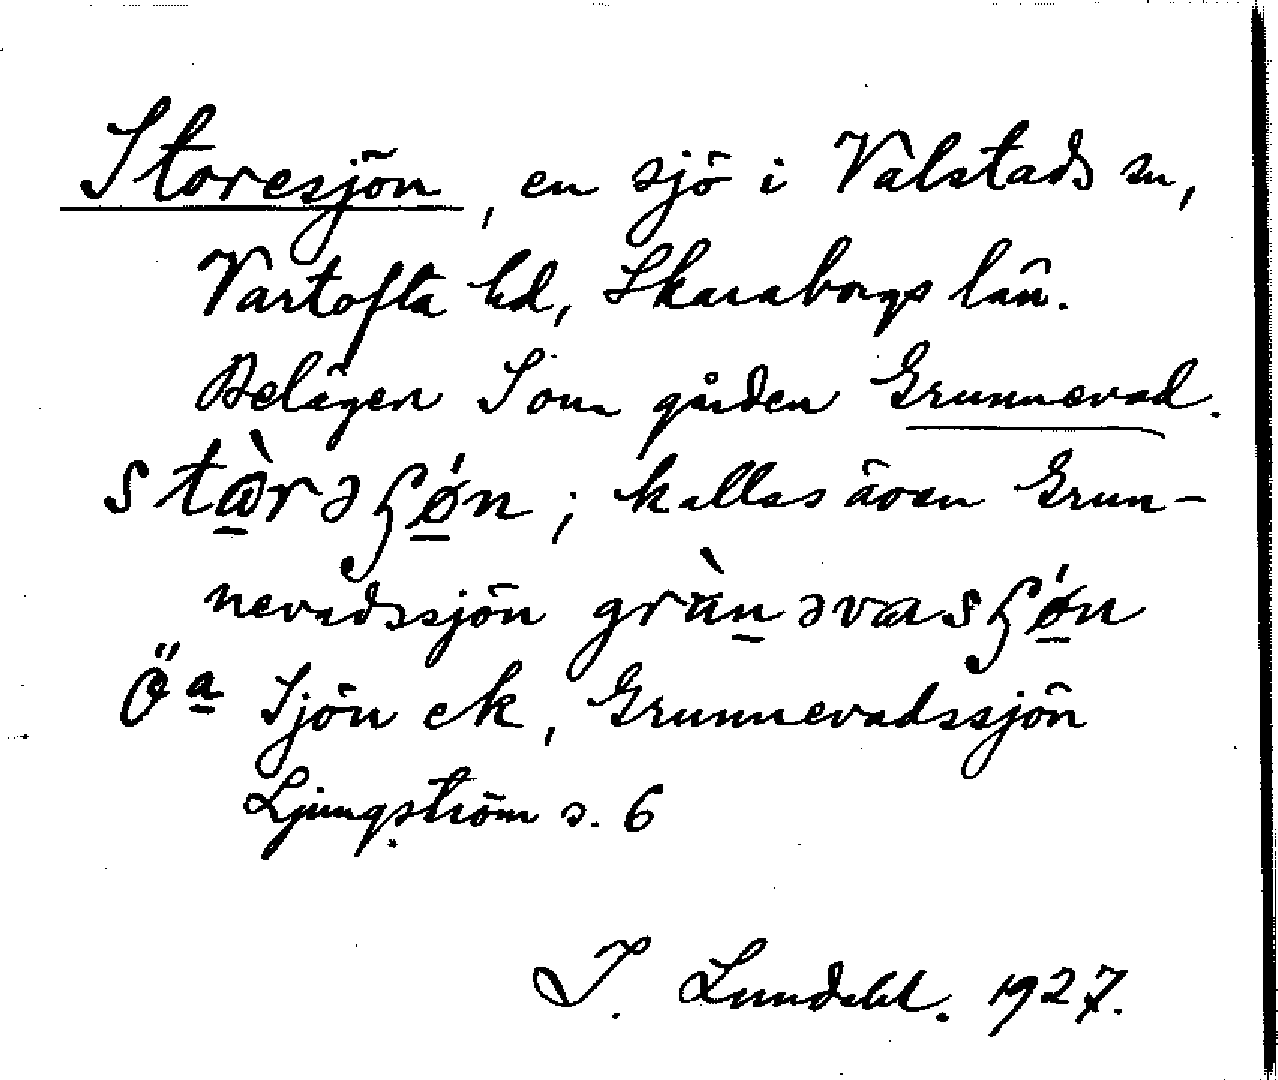 Storesjön, en sjö i Valstads sn,
Vartofta hd, Skaraborgs län.
Belägen S om gården Grunnevad.
stɷ̀rəʃǿn; kallas även Grun-
nevadssjön grànəvasʃǿn
Öa Sjön ek, Grunnevadssjön
Ljungström s. 6
I. Lundahl. 1927.